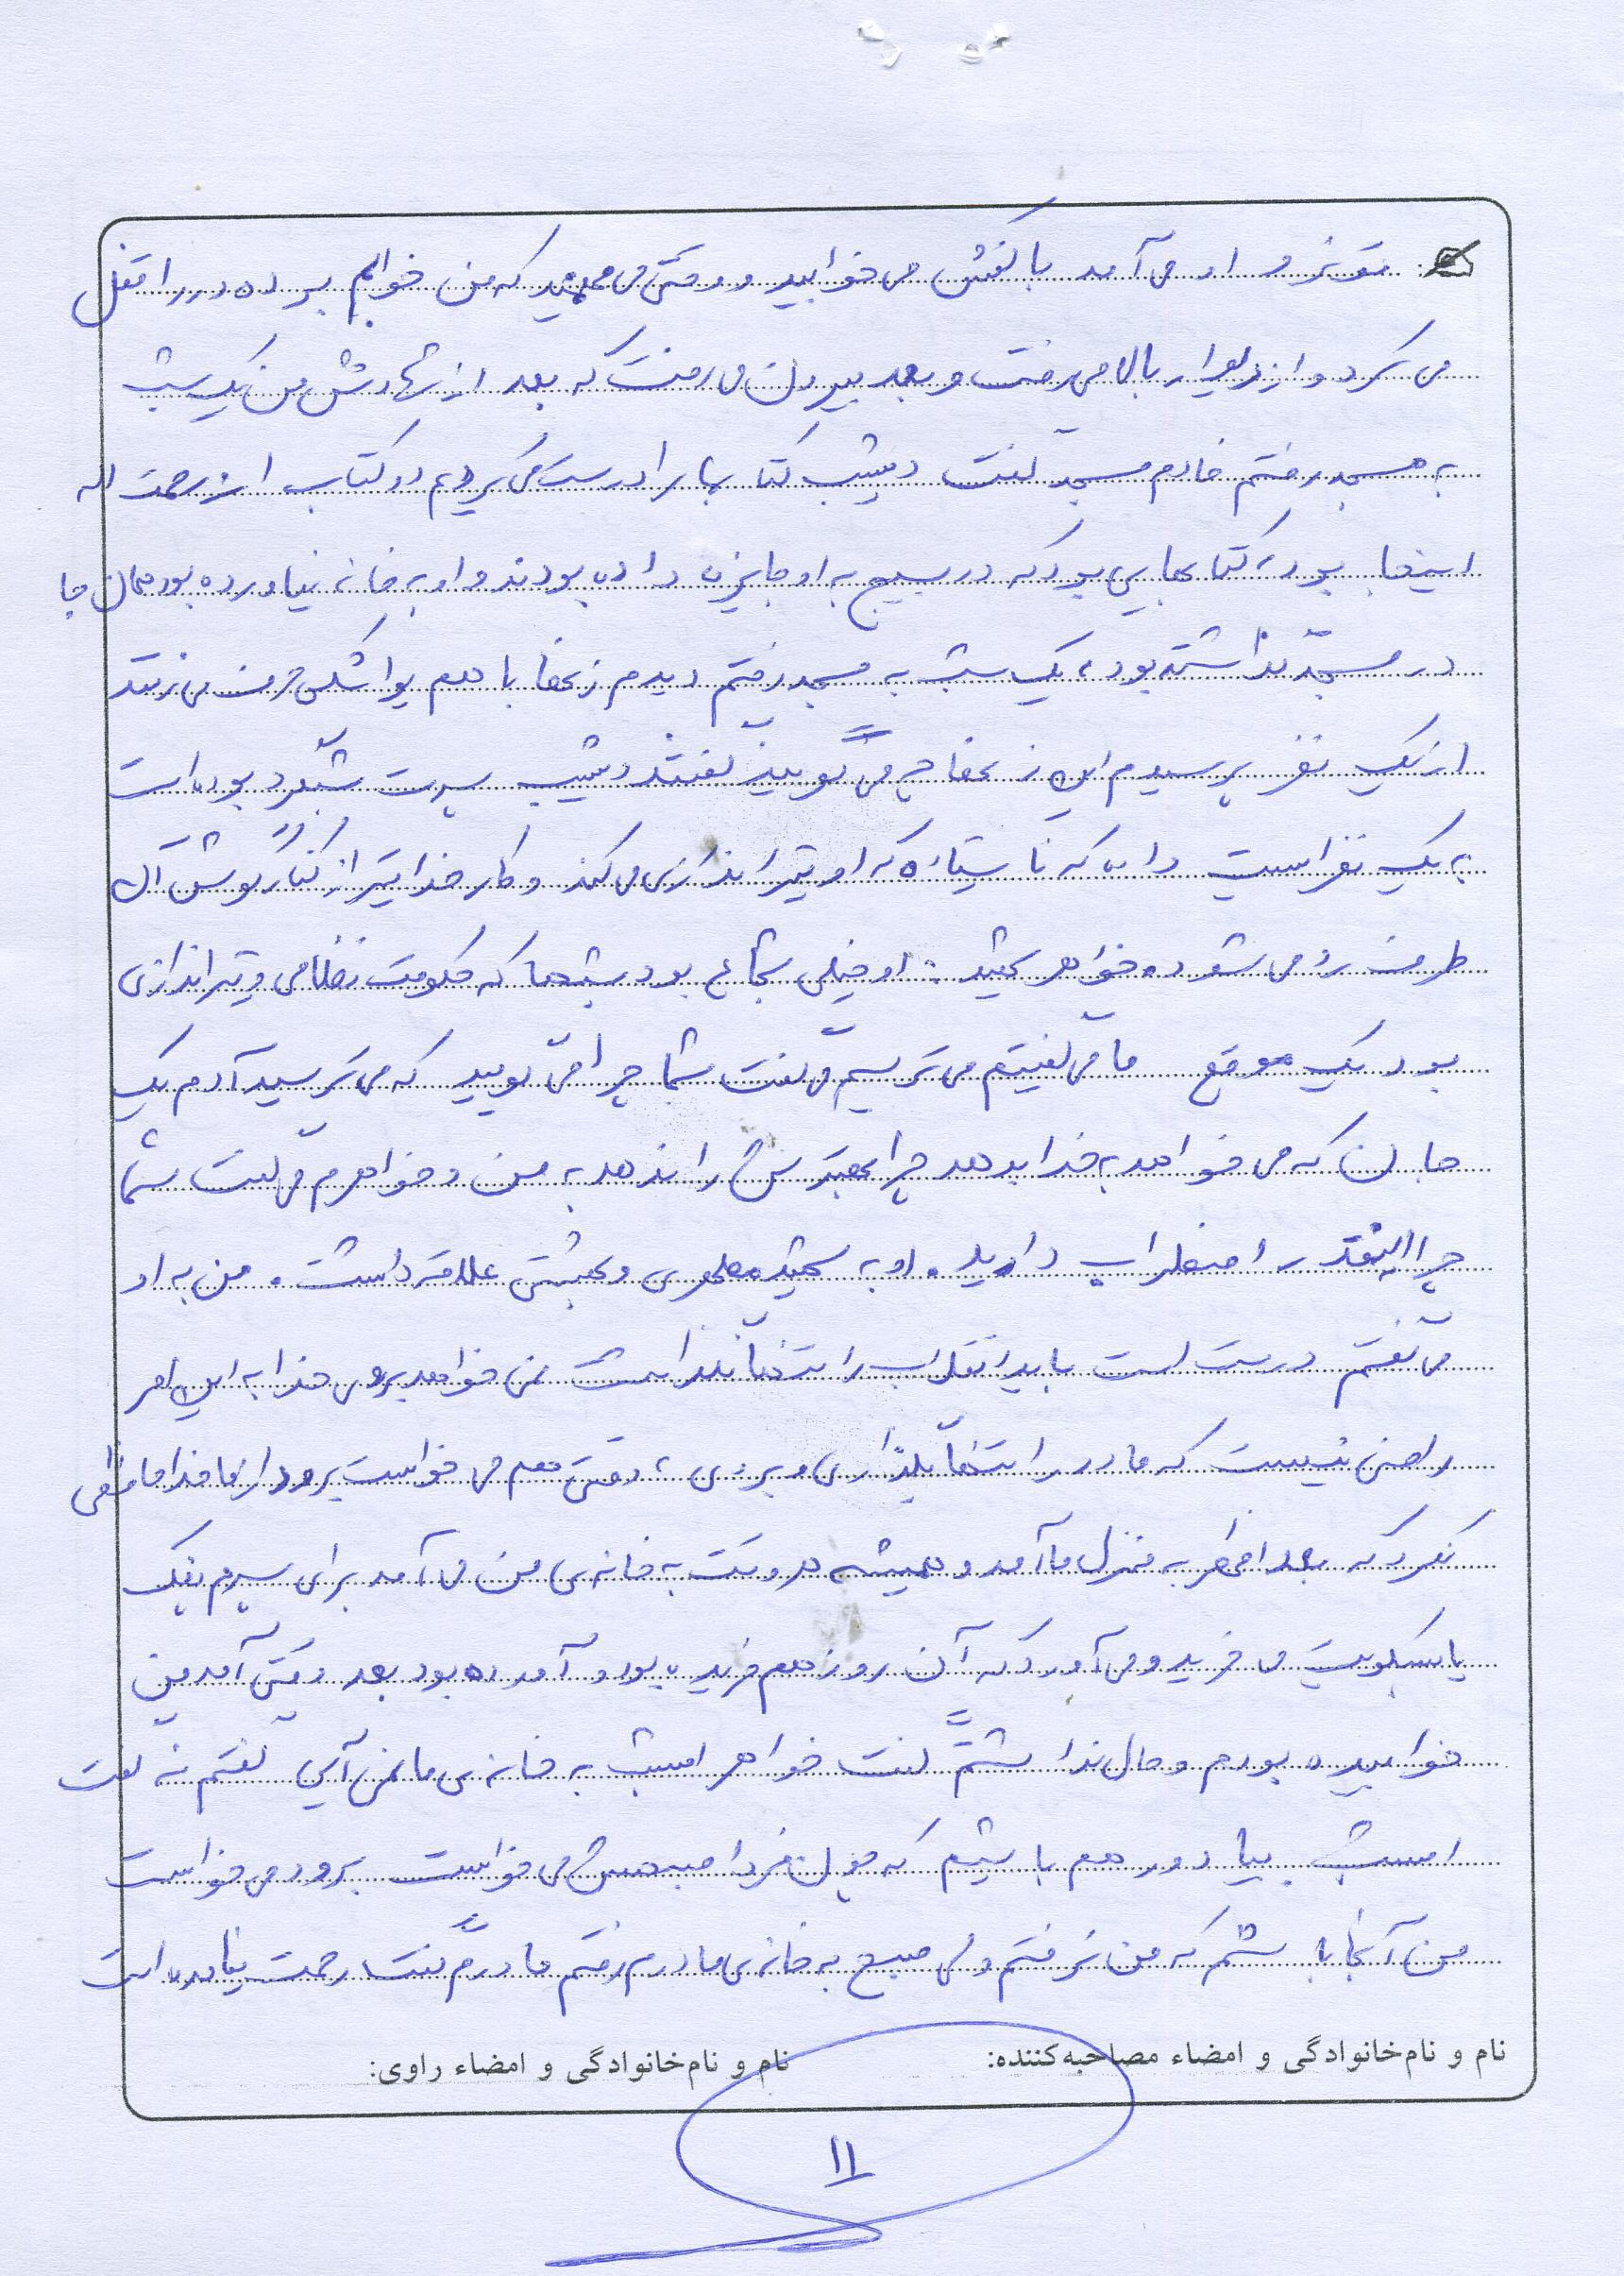 تو نرو او می‌آمد با کفش می‌خوابید و وقتی می‌فهمید که من خوابم برده در را قفل
می‌کرد و از دیوار بالا می‌رفت و بعد بیرون می‌رفت که بعد از شهادتش من یک شب
به مسجد رفتم خادم مسجد گفت دیشب کتابها را درست می‌کردم دو کتاب از رحمت اله
اینجا بود، کتابهایی بود که در بسیج به او جایزه داده بودند و او به خانه نیاورده بود همان جا
در مسجد گذاشته بود، یک شب به مسجد رفتم دیدم زنها با هم یواشکی حرف می‌زنند
از یک نفر پرسیدم این زنها چه می‌گویند گفتند دیشب پسرت شبگرد بوده است
به یک نفر ایست داده که نایستاده که او تیراندازی می‌کند و کار خدا تیر از کنار گوش آن
طرف رد می‌شود خواهر شهید: او خیلی شجاع بود شبها که حکومت نظامی و تیراندازی
بود یک موقع ما می‌گفتیم می‌ترسیم می‌گفت شما چرا می‌گویید که می‌ترسید آدم یک
جان که می‌خواهد به خدا بدهد چرا بهترینش را ندهد به من و خواهرم می‌گفت شما
چرا اینقدر اضطراب دارید. او به شهید مطهری و بهشتی علاقه داشت. من به او
می‌گفتم درست است باید انقلاب را تنها نگذاشت نمی‌خواهد بروی خدا به این امر
راضی نیست که مادر را تنها بگذاری و بروی، وقتی هم می‌خواست برود از ما خداحافظی
نکرد که بعدازظهر به منزل ما آمد و همیشه هر وقت به خانه‌ی من می‌آمد برای پسرم پفک
یا بیسکویت می‌خرید و می‌آورد که آن روز هم خریده بود و آمده بود بعد وقتی آمد من
خوابیده بودم و حال نداشتم گفت خواهر امشب به خانه‌ی ما نمی‌آیی گفتم نه گفت
امشب بیا دور هم باشیم که چون فردا صبحش می‌خواست برود می‌خواست
من آنجا باشم که من نرفتم ولی صبح به خانه‌ی مادرم رفتم مادرم گفت رحمت نیامده است
نام و نام‌خانوادگی و امضاء مصاحبه‌کننده: نام و نام‌خانوادگی و امضاء راوی:
۱۱